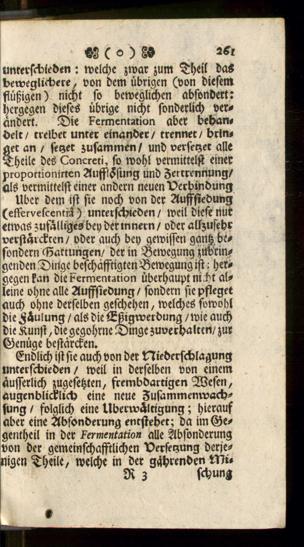 ( o ) 261
unterschieden: welche zwar zum Theil das
beweglichere, von dem übrigen (von diesem
flüßigen) nicht so beweglichen absondert:
hergegen dieses übrige nicht sonderlich ver-
ändert. Die Fermentation aber behan-
delt / treibet unter einander / trennet / brin-
get an / setzet zusammen / und versetzet alle
Theile des Concreti, so wohl vermittelst einer
proportionirten Aufflösung und Zertrennung /
als vermittelst einer andern neuen Verbindung
Uber dem ist sie noch von der Auffsiedung
(effervescentiâ) unterschieden / weil diese nur
etwas zufälliges bey der innern / oder allzusehr
verstärckten / oder auch bey gewissen gantz be-
sondern Gattungen / der in Bewegung zubrin-
genden Dinge beschäfftigten Bewegung ist: her-
gegen kan die Fermentation überhaupt nicht al-
leine ohne alle Auffsiedung / sondern sie pfleget
auch ohne derselben geschehen / welches sowohl
die Fäulung / als die Eßigwerdung / wie auch
die Kunst, die gegohrne Dinge zuverhalten / zur
Genüge bestärcken.
Endlich ist sie auch von der Niederschlagung
unterschieden / weil in derselben von einem
äusserlich zugesetzten, frembdartigen Wesen,
augenblicklich eine neue Zusammenwach-
sung / folglich eine Uberwältigung; hierauf
aber eine Absonderung entstehet; da im Ge-
gentheil in der Fermentation alle Absonderung
von der gemeinschafftlichen Versetzung derje-
nigen Theile, welche in der gährenden Mi-
R 3 schung